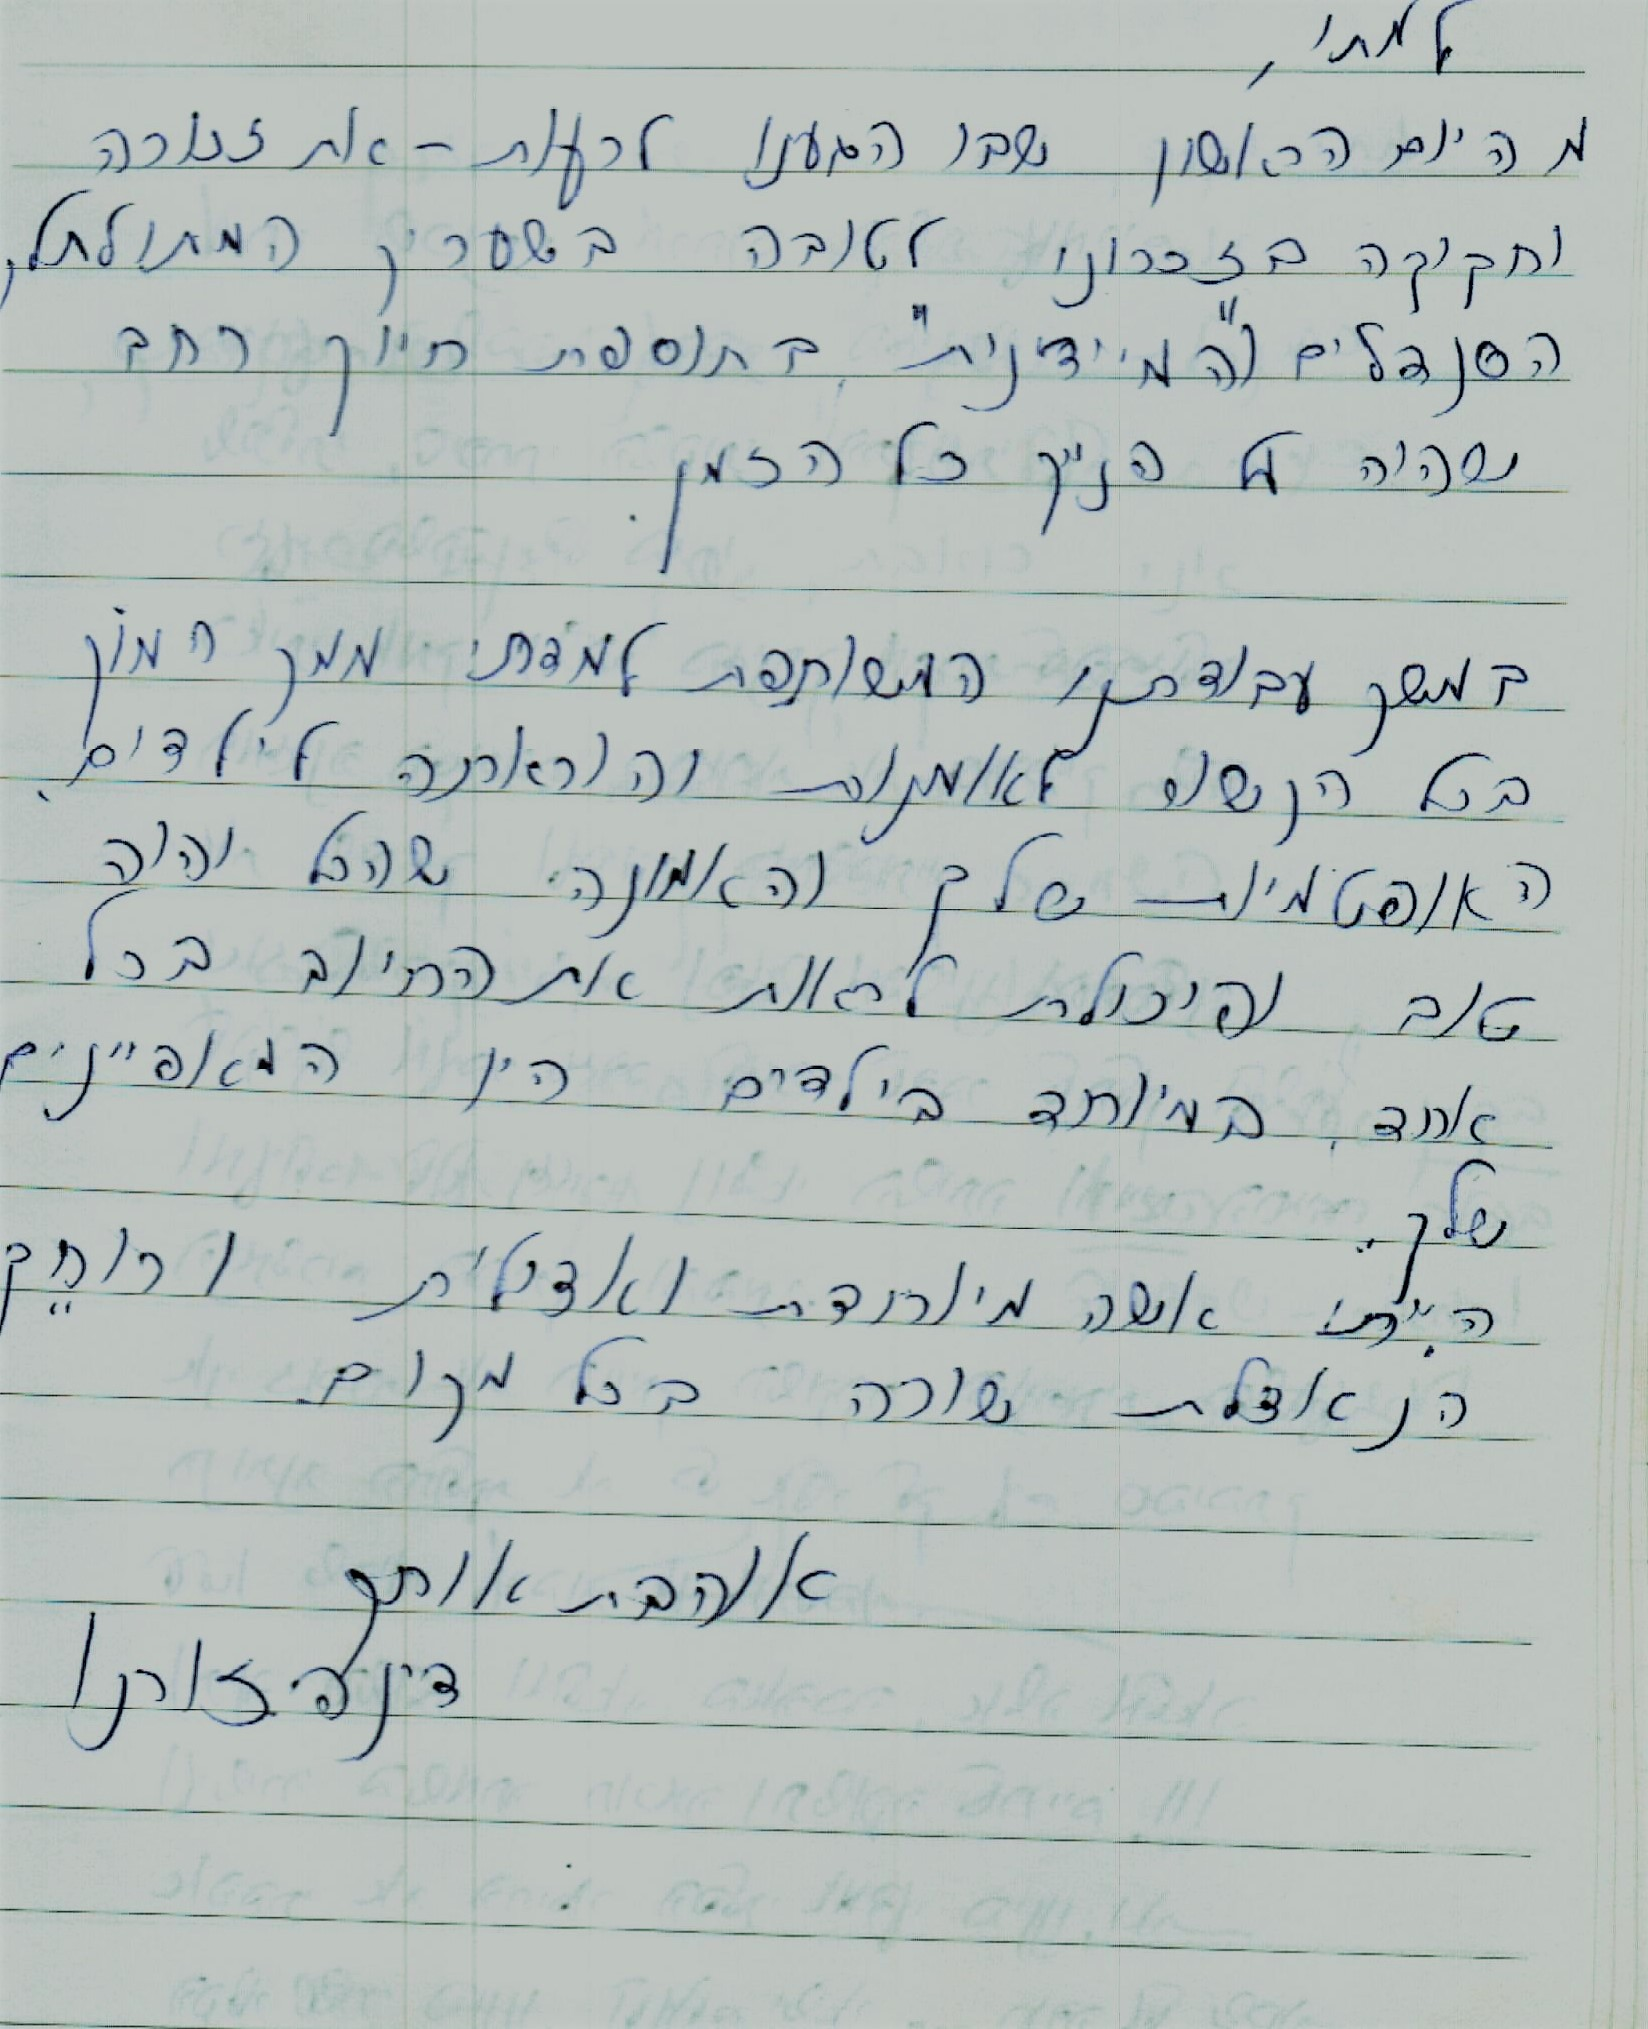 למתי,
מהיום הראשון שבו הגענו לרעות - את זכורה
וחקיקה בזכרוננו לטובה בשערך המתולתל,
הסנדלים ו"המיידינית" בתוספת חיוך רחב
שהיה על פניך כל הזמן.
במשך עבודתנו המשותפת למדתי ממך המון
בכל הנושא לאומנות והוראתה לילדים.
האופטמיות שלך והאמונה שהכל יהיה
טוב והיכולת לראות את החיוב בכל
אחד, במיוחד בילדים היו המאופיינים
שלך.
היית אשה מיוחדת ואצילית ורוחך
הנאצלת שורה בכל מקום.
אוהבת אותך
דינה זורנו